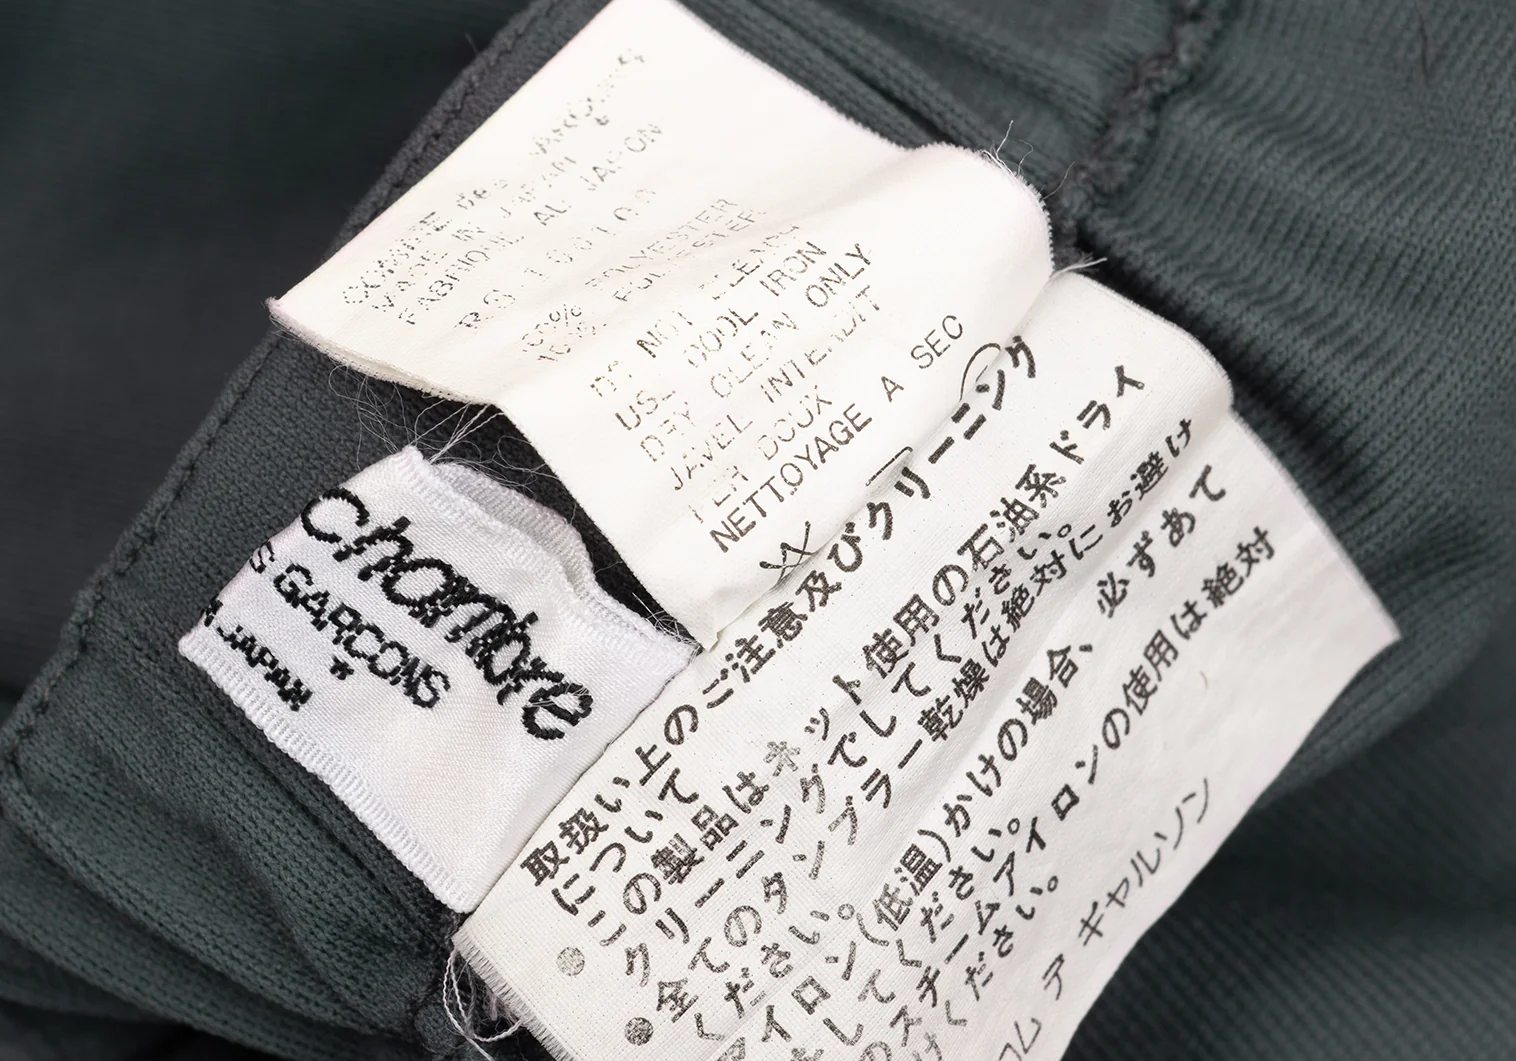 COMME des Garçons
MADE IN JAPAN
FABRIQUE AU JAPON
100% POLYESTER
100% POLYESTER
DO NOT BLEACH
USE COOL IRON
DRY CLEAN ONLY
JAVEL INTERDIT
FER DOUX
NETTOYAGE A SEC
Chambre
S GARCONS
JAPAN
取扱い上のご注意及びクリーニング
について
●この製品はネット使用の石油系ドライ
クリーニングでしてください。
●全てのタンブラー乾燥は絶対にお避け
ください。
アイロン(低温)かけの場合、必ずあて
してください。
のスチームアイロンの使用は絶対
けください。
コム デ ギャルソン